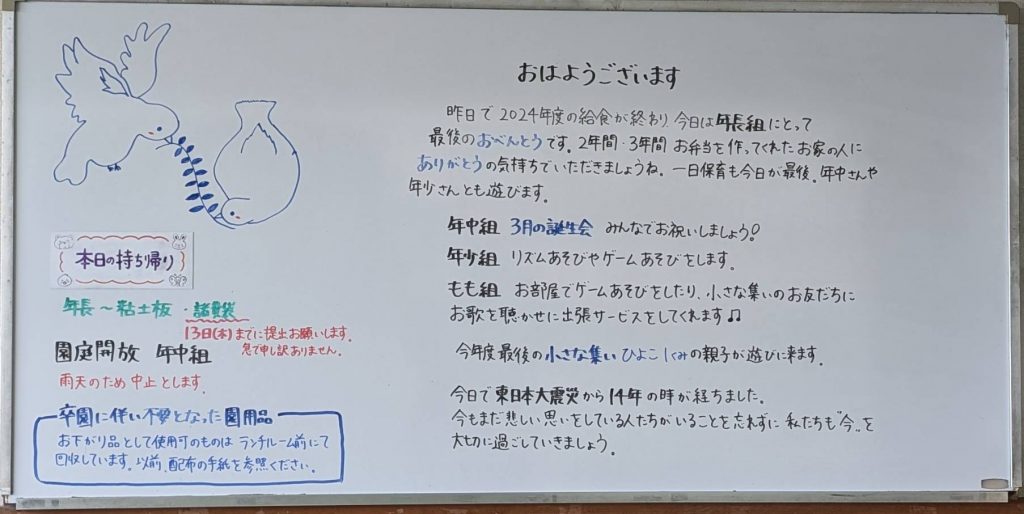 おはようございます
昨日で2024年度の給食が終わり、今日は年長組にとって
最後のおべんとうです。2年間・3年間 お弁当を作ってくれた お家の人に
ありがとうの気持ちでいただきましょうね。一日保育も今日が最後。年中さんや
年少さんとも遊びます。
年中組 3月の誕生会 みんなでお祝いしましょう!
年少組 リズムあそびやゲームあそびをします。
もも組 お部屋でゲームあそびをしたり、小さな集いのお友だちに
お歌を聴かせに出張サービスをしてくれます♫
今年度最後の小さな集い ひよこ1くみの親子が遊びに来ます。
今日で東日本大震災から14年の時が経ちました。
今もまだ悲しい思いをしている人たちがいることを忘れずに 私たちも"今"を
大切に過ごしていきましょう。
本日の持ち帰り
年長〜粘土板・諸費袋
13日(木)までに提出お願いします。
急で申し訳ありません。
園庭開放 年中組
雨天のため中止とします。
卒園に伴い不要となった園用品
お下がり品として使用可のものは ランチルーム前にて
回収しています。以前、配布の手紙を参照ください。